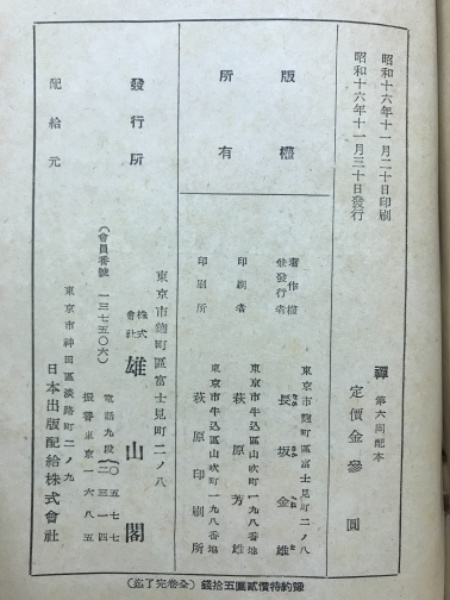 昭和十六年十一月二十日印刷
昭和十六年十一月三十日發行
禪 第六回配本
定價金參圓
版權所有
著作權兼發行者
東京市麹町區富士見町二ノ八
長坂金雄
印刷者
東京市牛込區山吹町一九八番地
萩原芳雄
印刷所
東京市牛込區山吹町一九八番地
萩原印刷所
發行所
東京市麹町區富士見町二ノ八
株式會社 雄山閣
(會員番號 一三七五〇六)
電話九段
振替東京一六八五
配給元
東京市神田區淡路町二ノ九
日本出版配給株式會社
豫約特價貳圓五拾錢(全卷完了迄)